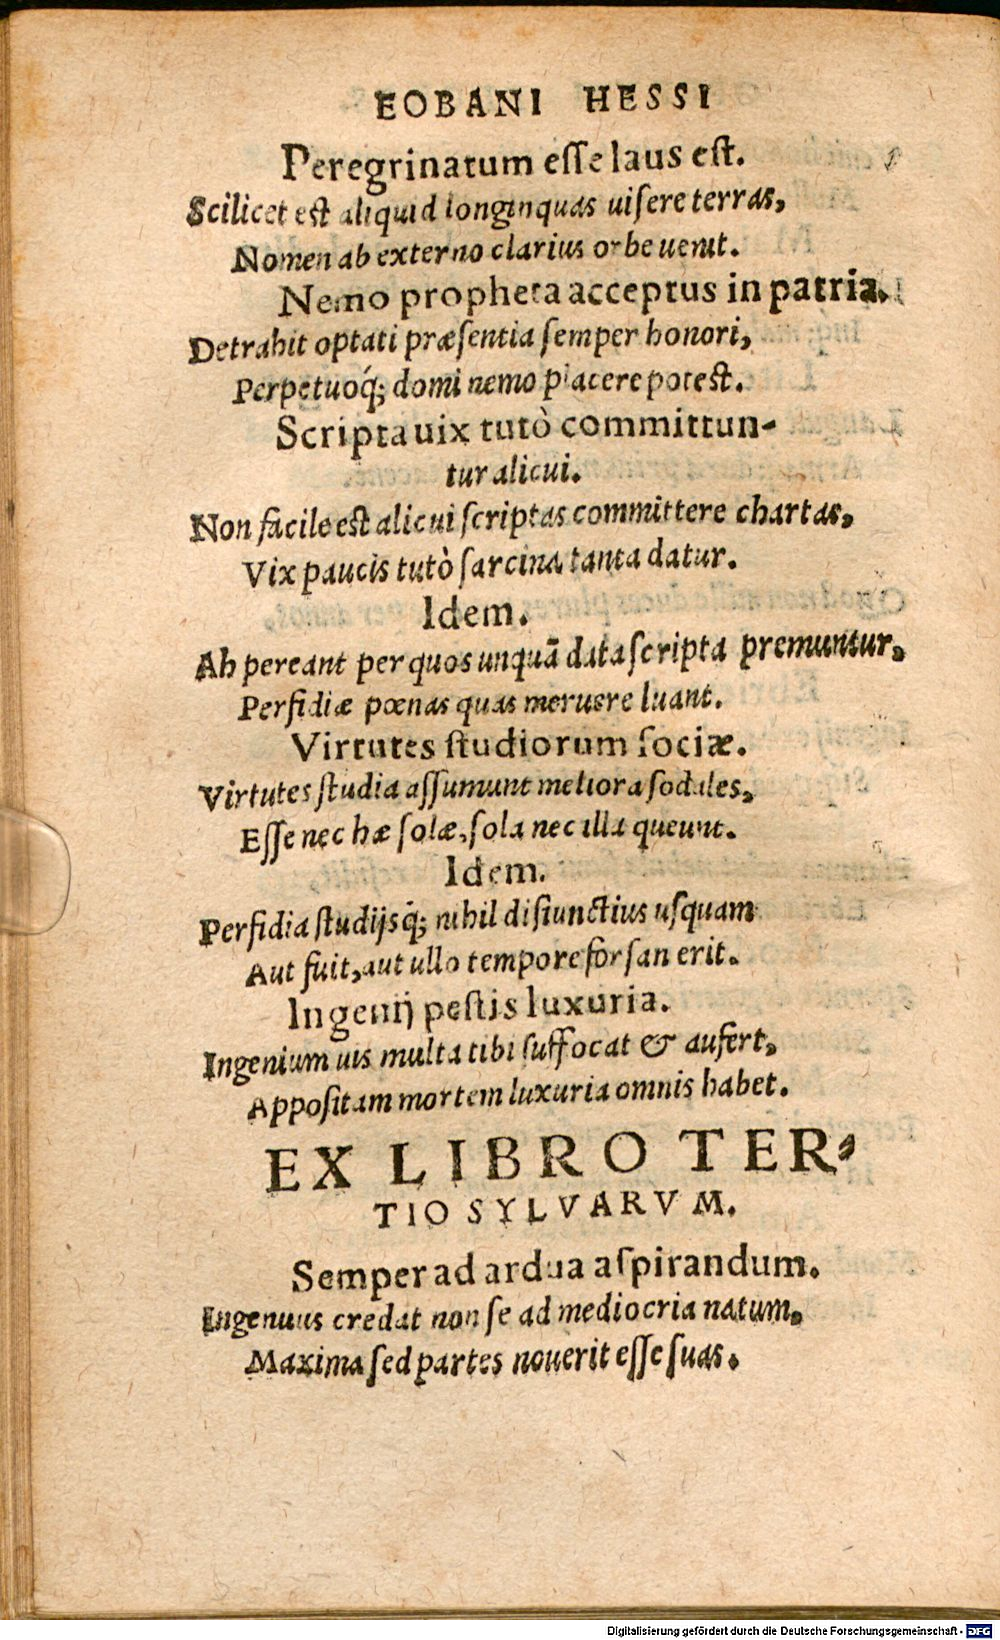 EOBANI HESSI
Peregrinatum esse laus est.
Scilicet est aliquid longinquas uisere terras,
Nomen ab externo clarius orbe uenit.
Nemo propheta acceptus in patria.
Detrahit optati præsentia semper honori,
Perpetuoq́; domi nemo placere potest.
Scripta uix tutò committun-
tur alicui.
Non facile est alicui scriptas committere chartas,
Vix paucis tutò sarcina tanta datur.
Idem.
Ah pereant per quos unquã data scripta premuntur,
Perfidiæ pœnas quas meruere luant.
Virtutes studiorum sociæ.
Virtutes studia assumunt meliora sodales,
Esse nec hæ solæ, sola nec illa queunt.
Idem.
Perfidia studijsq́; nihil disiunctius usquam
Aut fuit, aut ullo tempore forsan erit.
Ingenij pestis luxuria.
Ingenium uis multa tibi suffocat & aufert,
Appositam mortem luxuria omnis habet.
EX LIBRO TER-
TIO SYLVARVM.
Semper ad ardua aspirandum.
Ingenuus credat non se ad mediocria natum,
Maxima sed partes nouerit esse suas.
Digitalisierung gefördert durch die Deutsche Forschungsgemeinschaft - DFG